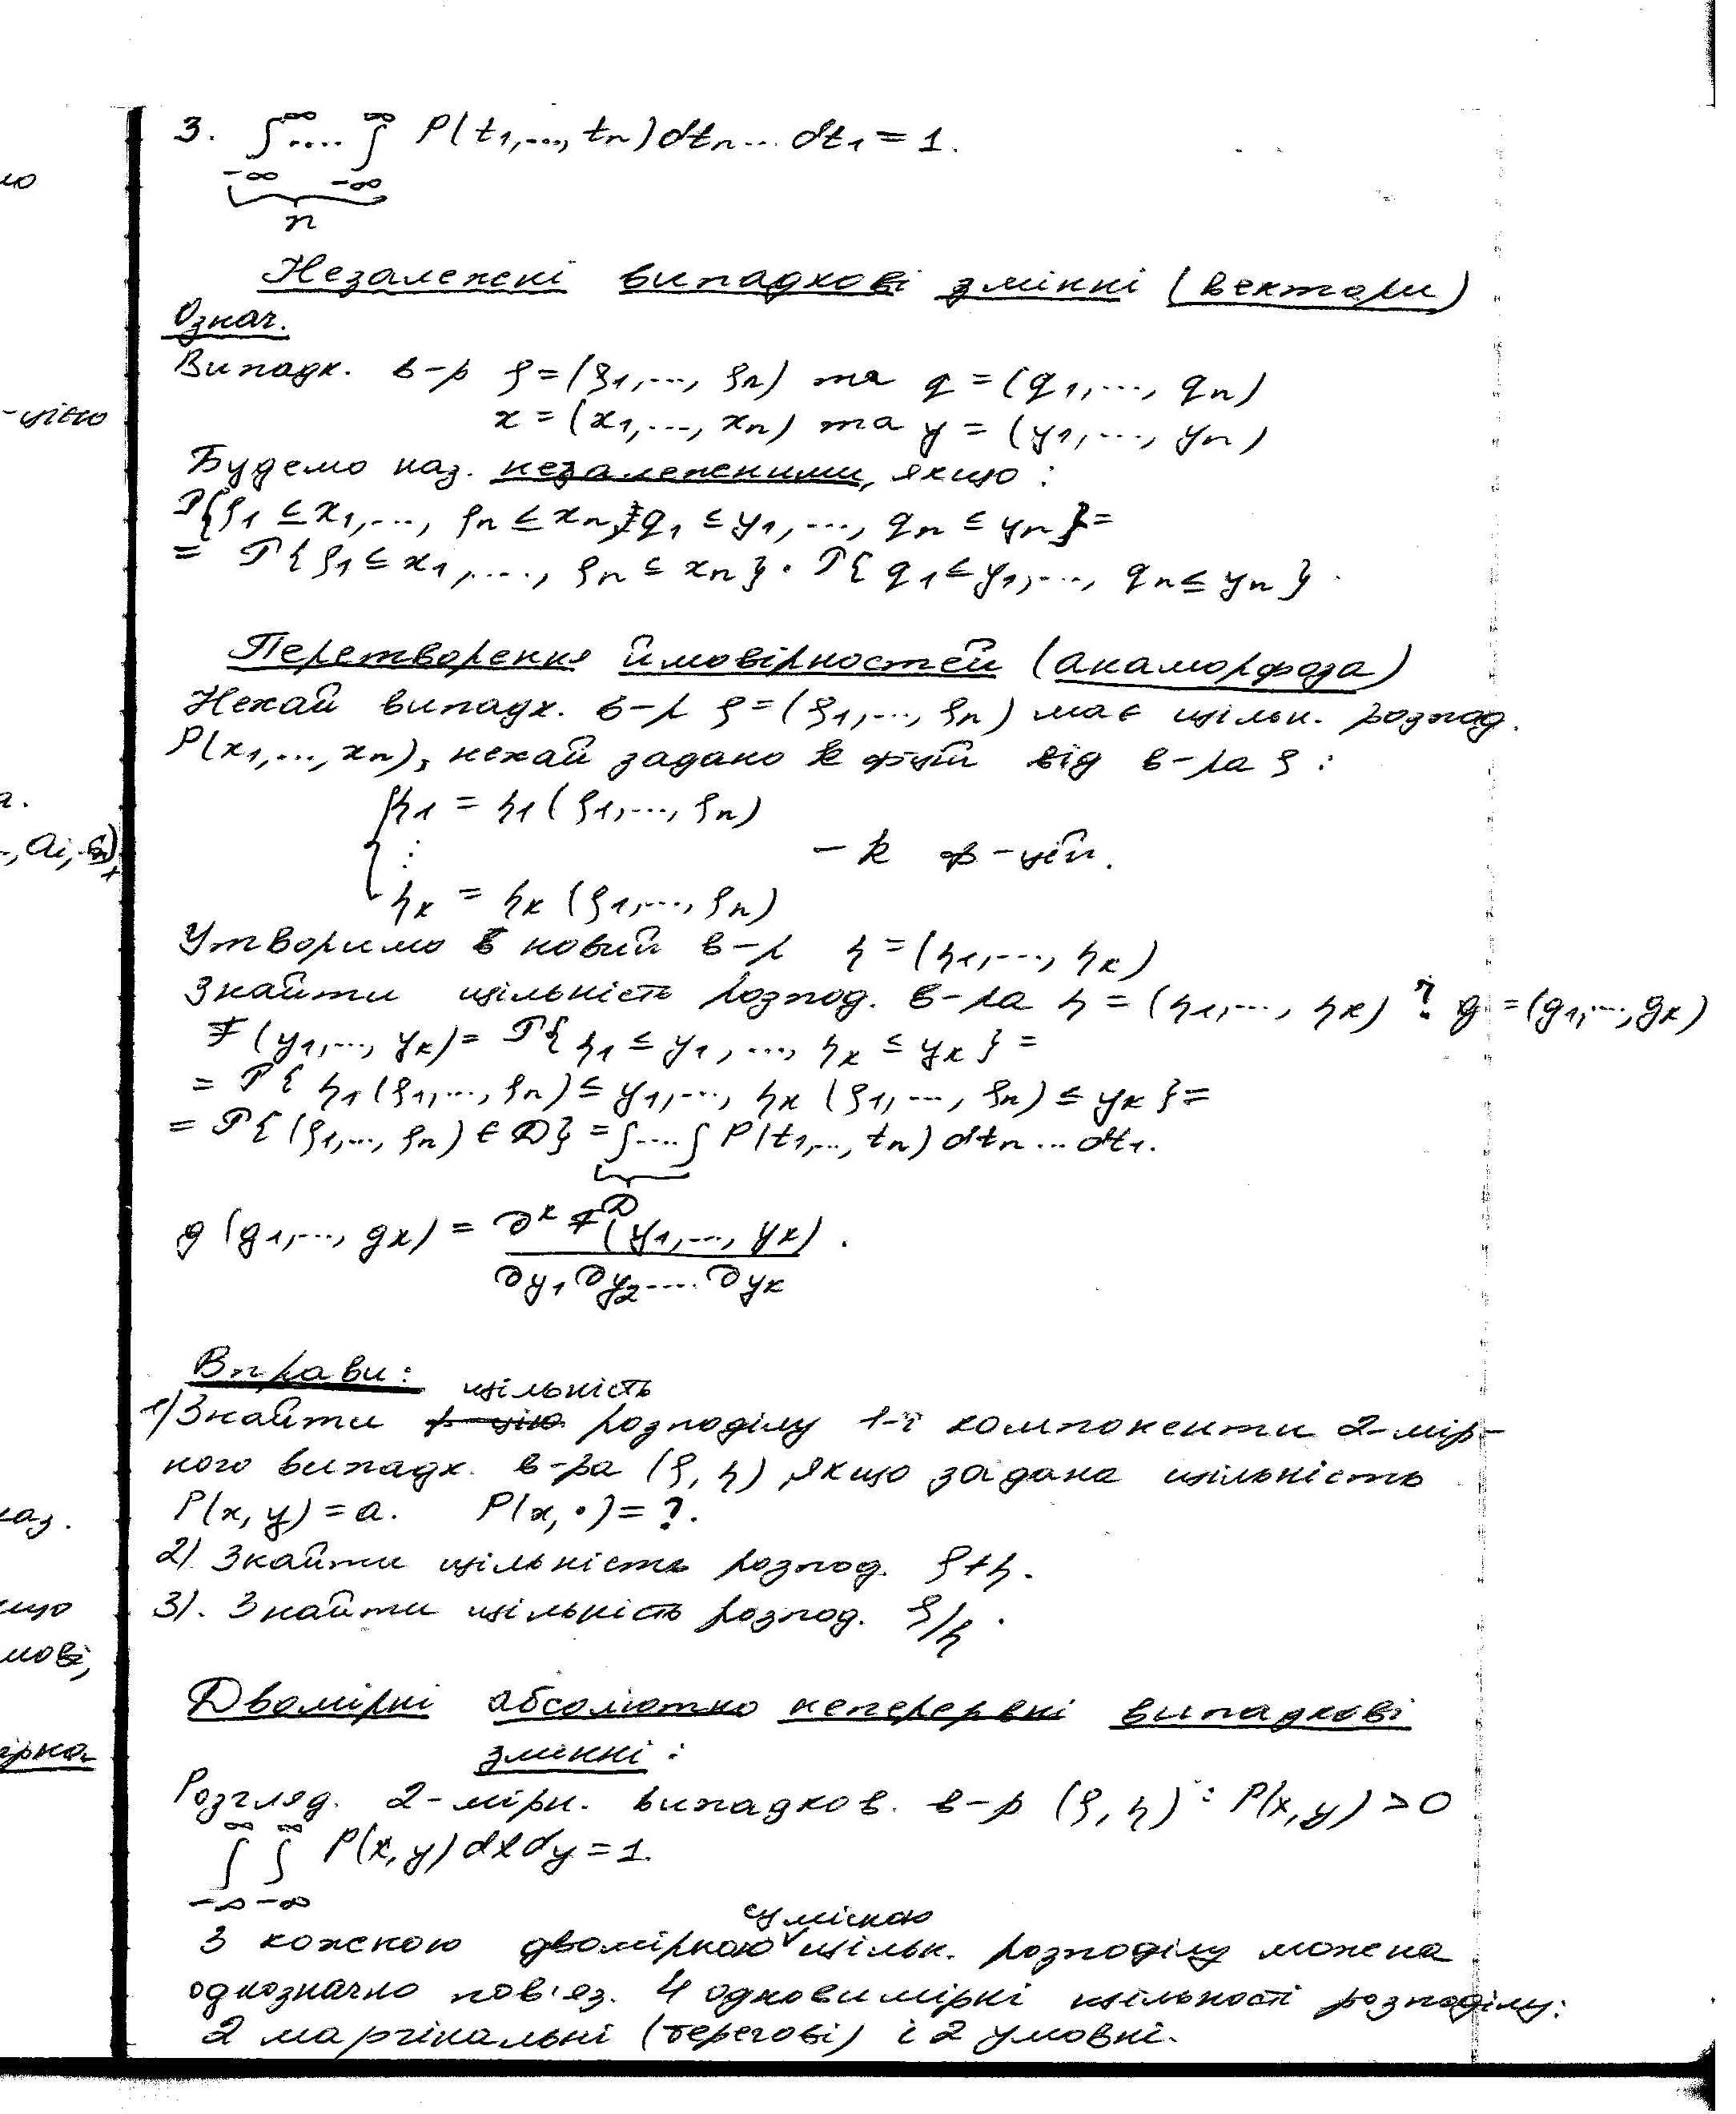 3. ∫...∫ P(t₁,..., tₙ)dtₙ... dt₁ = 1.
∞ ∞
-∞ -∞
n
Незалежні випадкові змінні (вектори)
Означ.
Випадк. в-р ξ=(ξ₁,..., ξₙ) та q=(q₁,..., qₙ)
x=(x₁,..., xₙ) та y=(y₁,..., yₙ)
Будемо наз. незалежними, якщо:
P{ξ₁ ≤ x₁,..., ξₙ ≤ xₙ; q₁ ≤ y₁,..., qₙ ≤ yₙ}=
= P{ξ₁ ≤ x₁,...., ξₙ ≤ xₙ} · P{q₁ ≤ y₁,..., qₙ ≤ yₙ}.
Перетворення ймовірностей (анаморфоза)
Нехай випадк. в-р ξ=(ξ₁,..., ξₙ) має щільн. розпод.
P(x₁,..., xₙ), нехай задано k ф-цій від в-ра ξ:
η₁ = η₁(ξ₁,..., ξₙ)
⋮ – k ф-цій.
ηₖ = ηₖ(ξ₁,..., ξₙ)
Утворимо новий в-р η=(η₁,..., ηₖ)
Знайти щільність розпод. в-ра η=(η₁,..., ηₖ) ? g=(g₁,..., gₖ)
F(y₁,..., yₖ)= P{η₁ ≤ y₁,..., ηₖ ≤ yₖ} =
= P{η₁(ξ₁,..., ξₙ) ≤ y₁,..., ηₖ(ξ₁,..., ξₙ) ≤ yₖ}=
= P{(ξ₁,..., ξₙ) ∈ D} = ∫....∫ P(t₁,..., tₙ) dtₙ... dt₁.
D
g(g₁,..., gₖ) = ∂ᵏ F(y₁,..., yₖ) .
∂y₁ ∂y₂.... ∂yₖ
Вправи:
щільність
1) Знайти ф-цію розподілу 1-ї компоненти 2-мір-
ного випадк. в-ра (ξ, η), якщо задана щільність
P(x, y) = a. P(x, •)= ?.
2). Знайти щільність розпод. ξ+η.
3). Знайти щільність розпод. ξ/η.
Двомірні абсолютно неперервні випадкові
змінні:
Розгляд. 2-мірн. випадков. в-р (ξ, η): P(x, y) > 0
∞ ∞
∫ ∫ P(x, y) dx dy = 1.
-∞ -∞
сумісною
З кожною двомірною щільн. розподілу можена
однозначно пов'яз. 4 одновимірні щільності розподілу:
2 маргінальні (берегові) і 2 умовні.